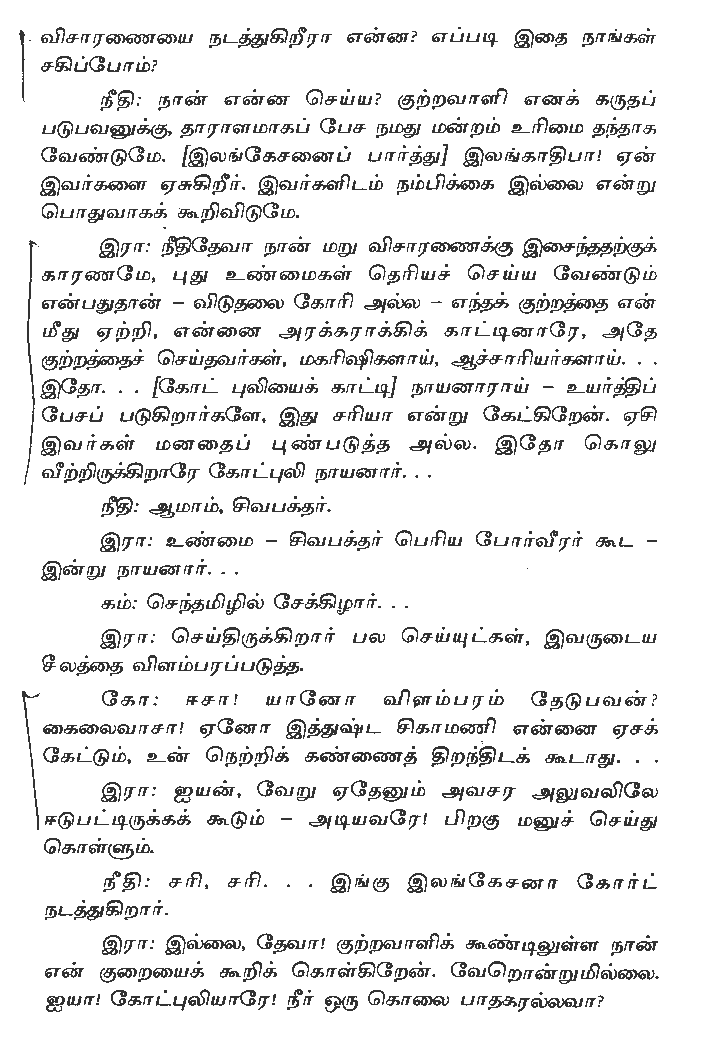 விசாரணையை நடத்துகிறீரா என்ன? எப்படி இதை நாங்கள்
சகிப்போம்?
நீதி: நான் என்ன செய்ய? குற்றவாளி எனக் கருதப்
படுபவனுக்கு, தாராளமாகப் பேச நமது மன்றம் உரிமை தந்தாக
வேண்டுமே. [இலங்கேசனைப் பார்த்து] இலங்காதிபா! ஏன்
இவர்களை ஏசுகிறீர். இவர்களிடம் நம்பிக்கை இல்லை என்று
பொதுவாகக் கூறிவிடுமே.
இரா: நீதிதேவா நான் மறு விசாரணைக்கு இசைந்ததற்குக்
காரணமே, புது உண்மைகள் தெரியச் செய்ய வேண்டும்
என்பதுதான் – விடுதலை கோரி அல்ல – எந்தக் குற்றத்தை என்
மீது ஏற்றி, என்னை அரக்கராக்கிக் காட்டினாரே, அதே
குற்றத்தைச் செய்தவர்கள், மகரிஷிகளாய், ஆச்சாரியர்களாய். . .
இதோ. . . [கோட் புலியைக் காட்டி] நாயனாராய் – உயர்த்திப்
பேசப் படுகிறார்களே, இது சரியா என்று கேட்கிறேன். ஏசி
இவர்கள் மனதைப் புண்படுத்த அல்ல. இதோ கொலு
வீற்றிருக்கிறாரே கோட்புலி நாயனார். . .
நீதி: ஆமாம், சிவபக்தர்.
இரா: உண்மை – சிவபக்தர் பெரிய போர்வீரர் கூட –
இன்று நாயனார். . .
கம்: செந்தமிழில் சேக்கிழார். . .
இரா: செய்திருக்கிறார் பல செய்யுட்கள், இவருடைய
சீலத்தை விளம்பரப்படுத்த.
கோ: ஈசா! யானோ விளம்பரம் தேடுபவன்?
கைலைவாசா! ஏனோ இத்துஷ்ட சிகாமணி என்னை ஏசக்
கேட்டும், உன் நெற்றிக் கண்ணைத் திறந்திடக் கூடாது. . .
இரா: ஐயன், வேறு ஏதேனும் அவசர அலுவலிலே
ஈடுபட்டிருக்கக் கூடும் – அடியவரே! பிறகு மனுச் செய்து
கொள்ளும்.
நீதி: சரி, சரி. . . இங்கு இலங்கேசனா கோர்ட்
நடத்துகிறார்.
இரா: இல்லை, தேவா! குற்றவாளிக் கூண்டிலுள்ள நான்
என் குறையைக் கூறிக் கொள்கிறேன். வேறொன்றுமில்லை.
ஐயா! கோட்புலியாரே! நீர் ஒரு கொலை பாதகரல்லவா?